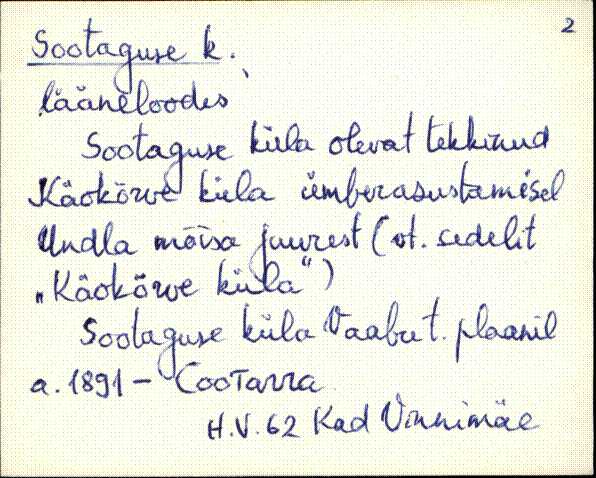 2
Sootaguse k.
lääneloodes
Sootaguse küla olevat tekkinud
Käokõrve küla ümberasustamisel
Undla mõisa juurest (vt. sedelit
„Käokõrve küla")
Sootaguse küla Vaabu t. plaanil
a. 1891 –
H.V. 62 Kad Vinnimäe